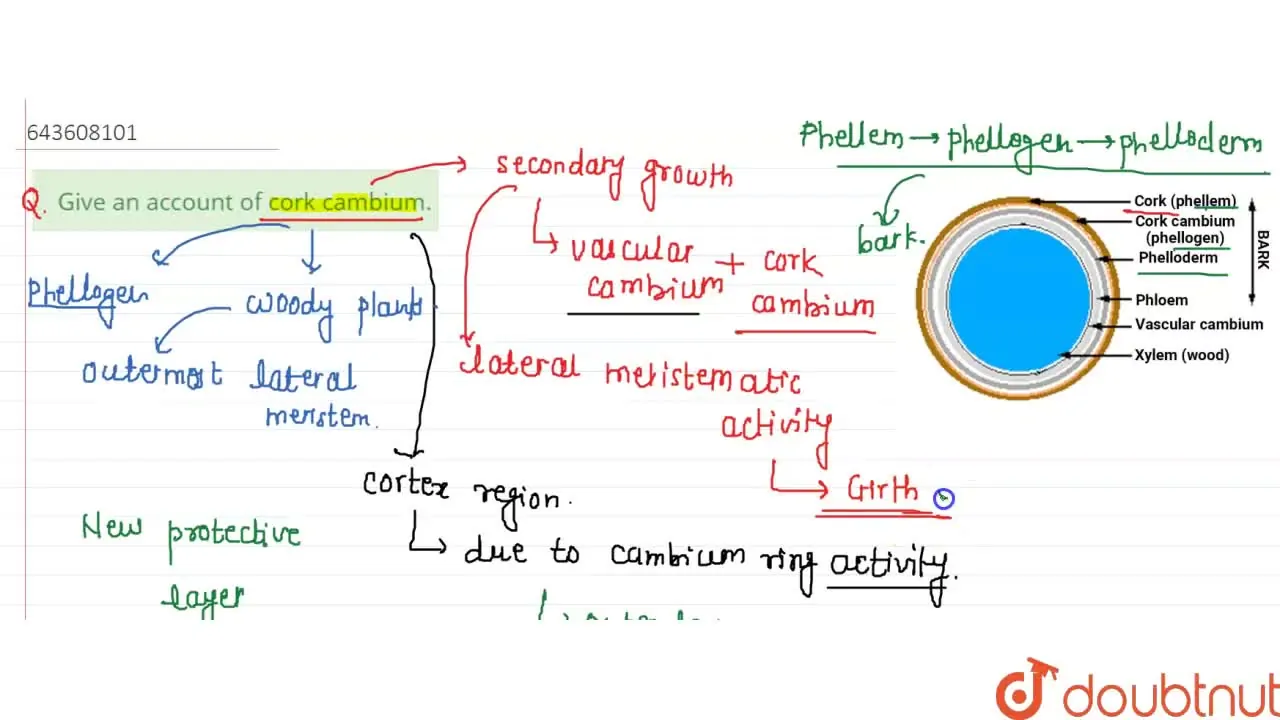 643608101
Q. Give an account of cork cambium.
secondary growth
vascular
cambium
+ cork
cambium
Phellem → phellogen → phelloderm
bark.
Cork (phellem)
Cork cambium
(phellogen)
Phelloderm
Phloem
Vascular cambium
Xylem (wood)
BARK
Phellogen
woody plants.
outermost lateral
meristem.
lateral meristematic
activity
Girth
cortex region.
due to cambium ring activity.
New protective
layer
doubtnut